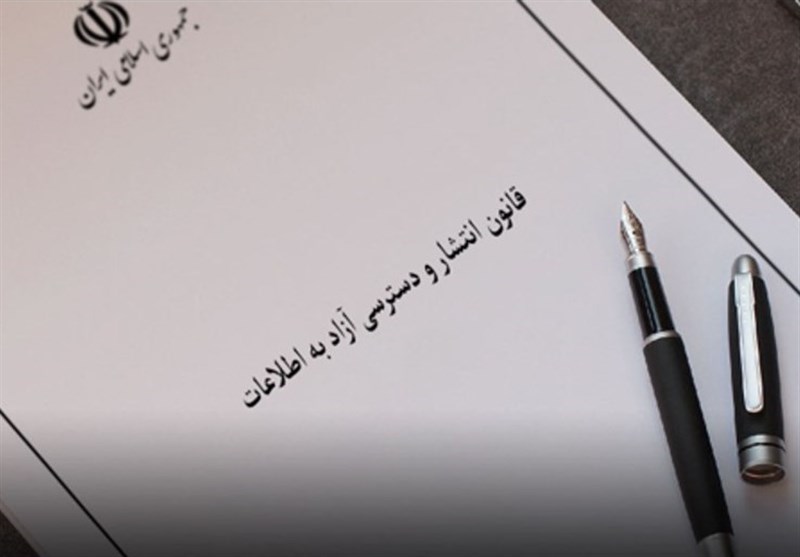 جمهوری اسلامی ایران
قانون انتشار و دسترسی آزاد به اطلاعات